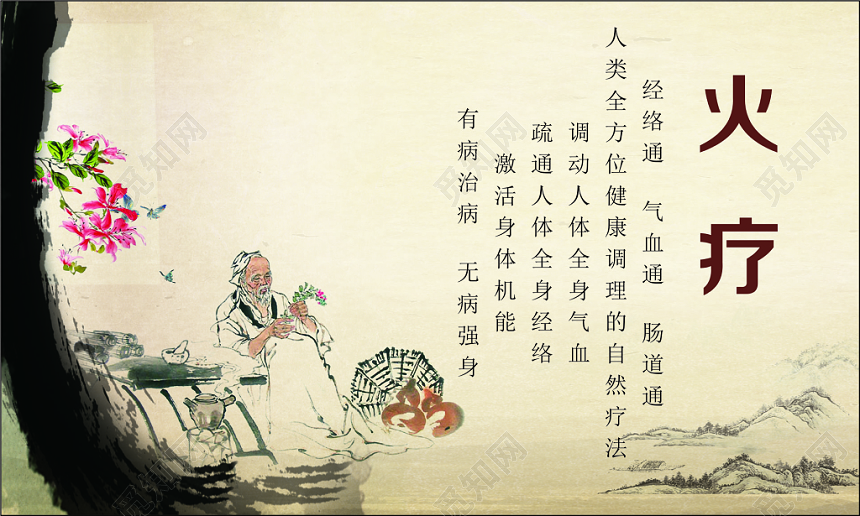 火疗
经络通 气血通 肠道通
人类全方位健康调理的自然疗法
调动人体全身气血
疏通人体全身经络
激活身体机能
有病治病 无病强身
觅知网
觅知网
觅知网
觅知网
觅知网
觅知网